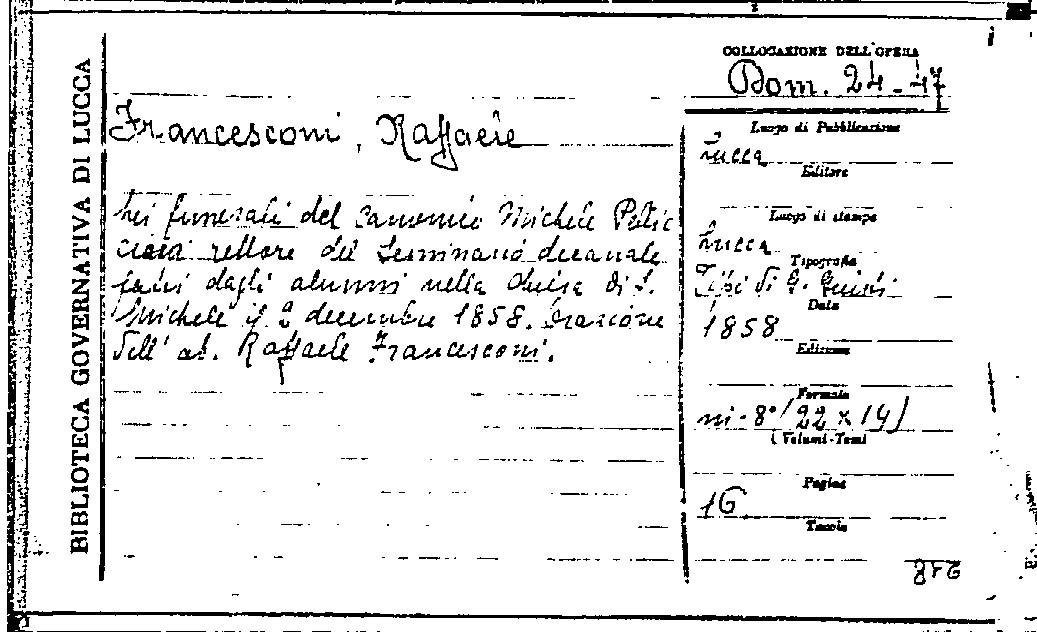 BIBLIOTECA GOVERNATIVA DI LUCCA
COLLOCAZIONE DELL'OPERA
Dom. 24-47
Francesconi, Raffaele
Nei funerali del canonico Michele Pellic
ciaia rettore del Seminario decanale
fatti dagli alunni nella chiesa di S.
Michele il 2 decembre 1858. Orazione
dell'ab. Raffaele Francesconi.
Luogo di Pubblicazione
Lucca
Editore
Luogo di stampa
Lucca
Tipografia
Tipi di G. Guidi
Data
1858
Edizione
Formato
in-8°(22 x 14)
( Volumi-Tomi
Pagine
16
Tavole